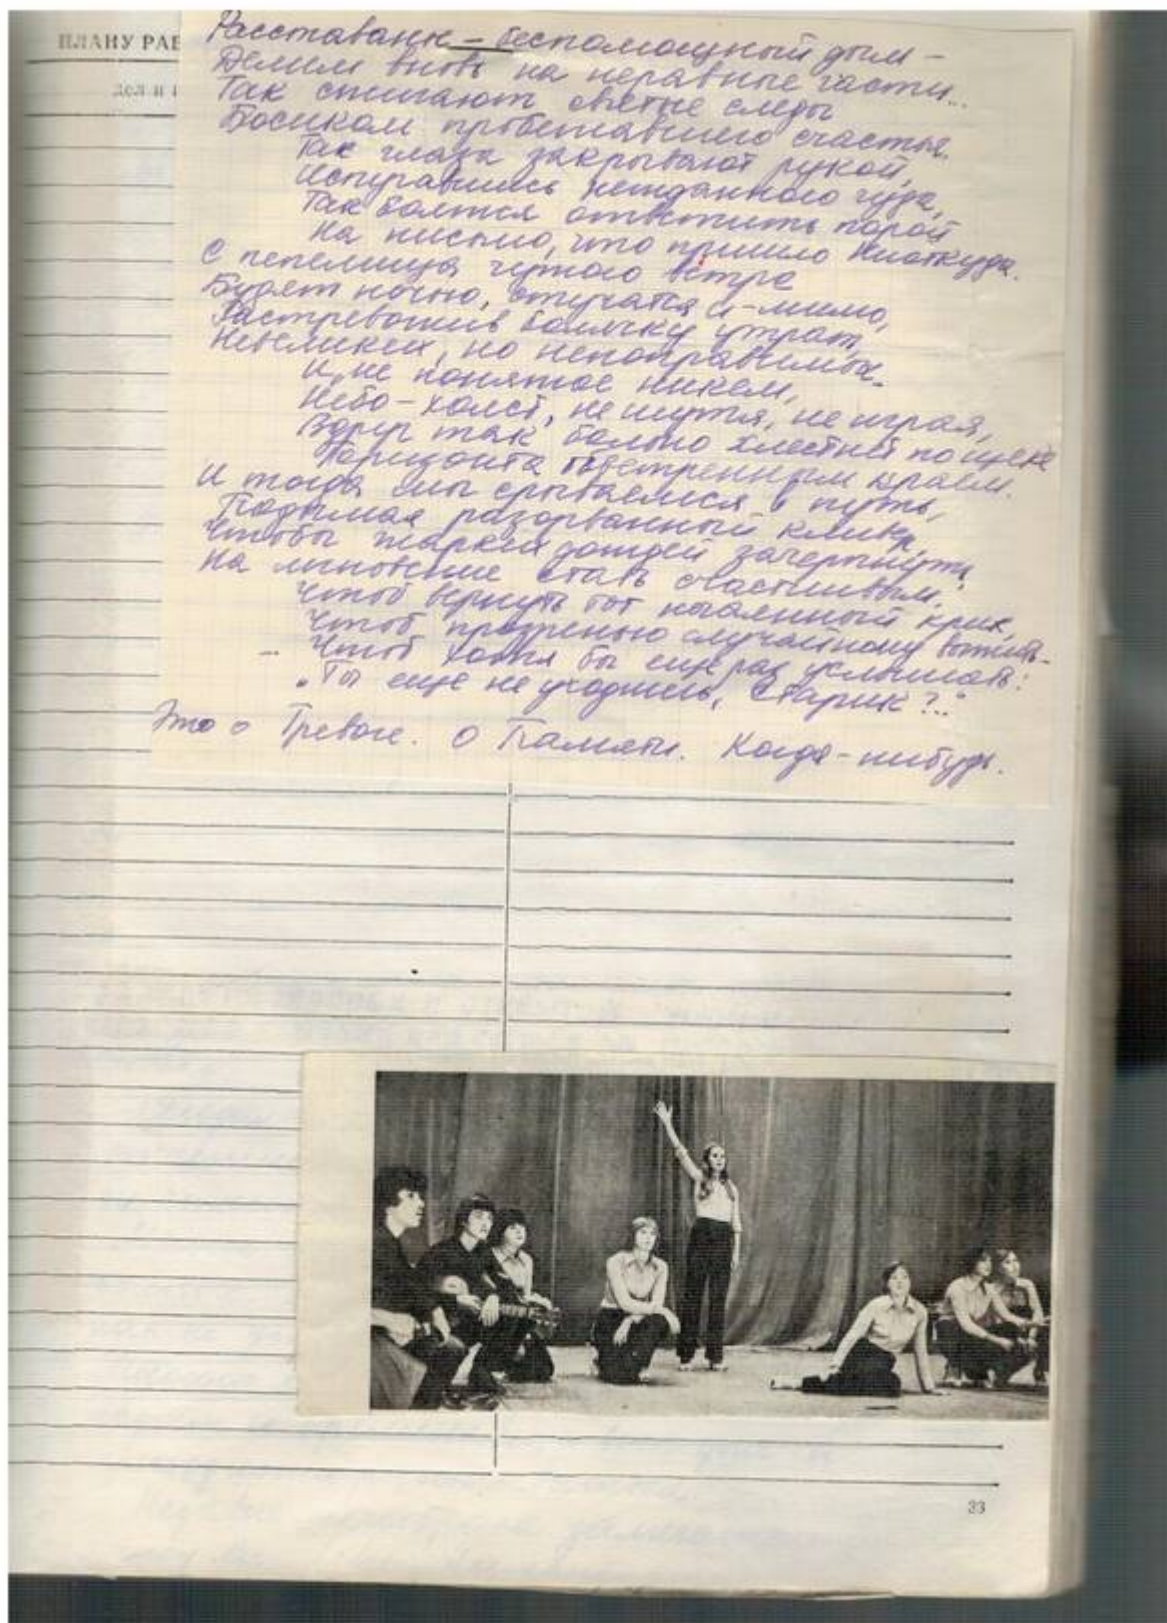 ПЛАНУ РАБ
дел и
Расставанья – беспомощный дым –
Делим вновь на неравные части...
Так сжигают святые следы
Босиком пробежавшего счастья.
Так глаза закрывают рукой,
Испугавшись нежданного чуда,
Так боятся ответить порой
На письмо, что пришло Ниоткуда.
С пепелища чужого ветра
Будят ночью, стучатся и – мимо,
Растревожив болячку утрат,
Невеликих, но непоправимых.
И, не понятое никем,
Небо – холст, не шутя, не играя,
Вдруг так больно хлестнёт по щеке
Горизонта обветренным краем.
И тогда мы срываемся в путь,
Подымая разорванный кливер,
Чтобы жарких дождей зачерпнуть,
На мгновение став счастливым;
Чтоб вернуть тот нечаянный крик,
Чтоб прозренью случайному выжить –
... Чтоб хотя бы ещё раз услышать:
"Ты еще не уходишь, Старик?.."
Это о Тревоге. О Памяти. Когда-нибудь.
33